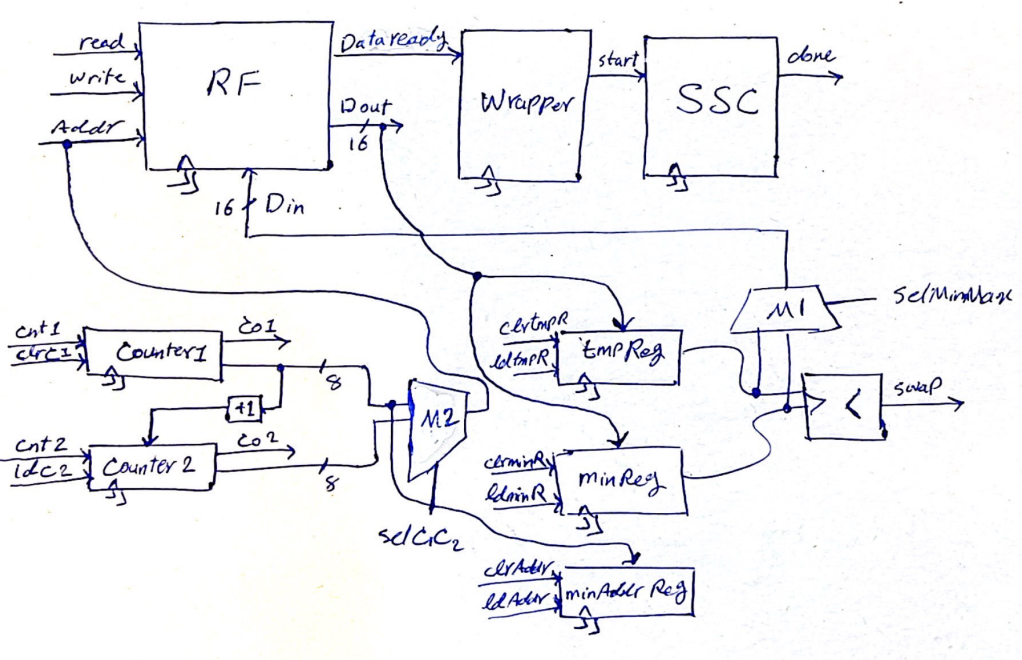 read
write
Addr
RF
Dataready
Dout
16
Wrapper
start
SSC
done
16
Din
M1
SelMinMax
cnt1
clrC1
Counter1
Co1
8
+1
cnt2
ldC2
Counter2
Co2
8
M2
selC1C2
clrtmpR
ldtmpR
tmpReg
<
swap
clrminR
ldminR
minReg
clrAddr
ldAddr
minAddr Reg